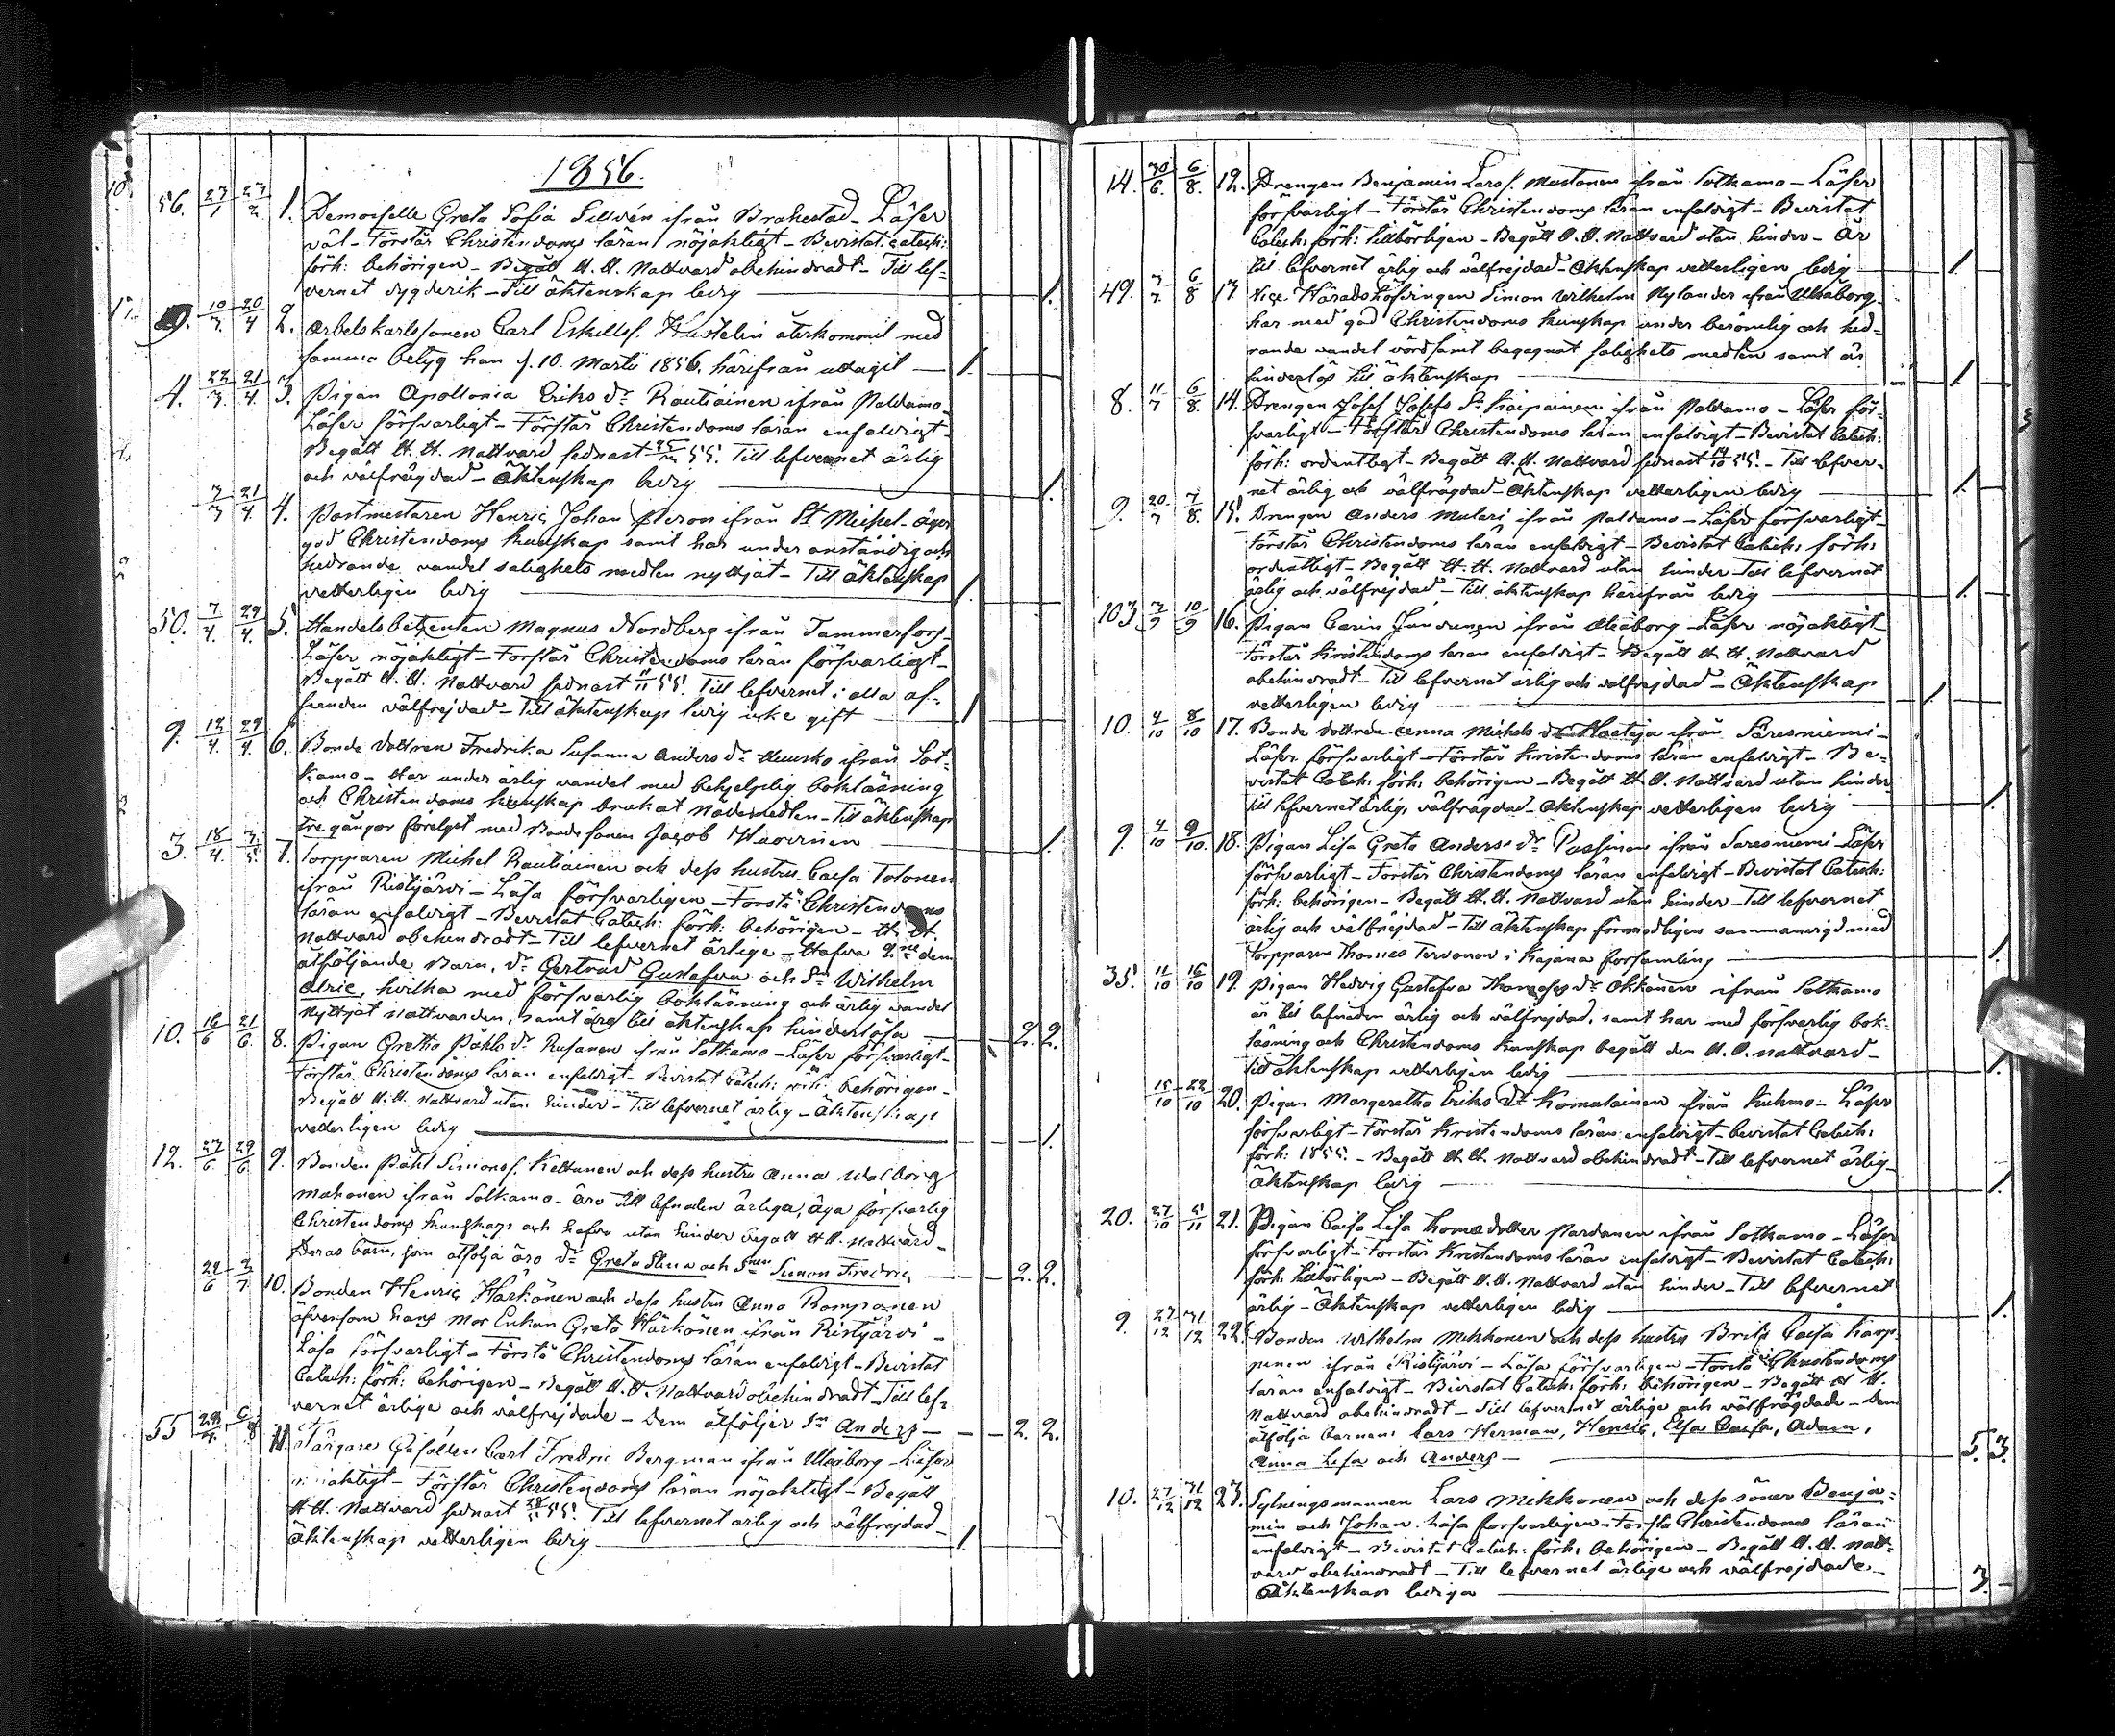 1856.
56. 27/1 27/2 1. Demoiselle Greta Sofia Sillvén ifrån Brahestad - Läser
väl - Förstår Christendoms läran nöjaktigt - Bevistat Catech:
förh: behörigen - Begått H. H. Nattvard obehindradt - Till lef-
vernet dygderik - Till äktenskap ledig 1.
9. 10/3 20/4 2. Arbetskarlssonen Carl Eskilss. återkommit med
samma betyg han d. 10. Martii 1856. härifrån uttagit 1.
4. 22/3. 21/4. 3. Pigan Apollonia Eriks dr. Rautiainen ifrån Paldamo
Läser försvarligt - Förstår Christendoms läran enfaldigt -
Begått H. H. Nattvard sednast 55. Till lefvernet ärlig
och välfrägdad - Äktenskap ledig 1.
3/3 21/4. 4. Postmestaren Henric Johan Piron ifrån St. Michel - äger
god Christendoms kunskap samt har under anständig och
hedrande vandel salighets medlen nyttjat - Till äktenskap
vetterligen ledig 1.
50. 7/4. 29/4. 5. Handelsbetjenten Magnus Nordberg ifrån Tammerfors -
Läser nöjaktigt - Förstår Christendoms läran försvarligt -
Begått H. H. Nattvard sednast 11/11 55. Till lefvernet i alla af-
seenden välfrejdad - Till äktenskap ledig icke gift 1
9. 12/4. 29/4. 6. Bonde dottren Fredrika Susanna Anders dr. Huusko ifrån Sot-
kamo - Har under ärlig vandel med behjelplig bokläsning
och Christendoms kunskap brukat Nådemedlen - Till äktenskap
tre gångor förelyst med Bonde sonen Jacob Huovinen 1.
3. 18/4. 3/5. 7. Torpparen Michel Rautiainen och dess hustru Caisa Tolonen
ifrån Ristjärvi - Läsa försvarligen - Förstå Christendoms
läran enfaldigt - Bevistat Catech: förh: behörigen - H. H.
Nattvard obehindradt - Till lefvernet ärlige - Hafva 2ne dem
åtföljande Barn, dr. Gertrud Gustafva och Sn Wilhelm
Alric, hvilka med försvarlig bokläsning och ärlig vandel
nyttjat nattvarden, samt äro till äktenskap hinderlösa 2. 2.
10. 16/6 21/6. 8. Pigan Gretha Påhls dr. Rusanen ifrån Sotkamo - Läser försvarligt -
Förstår Christendoms läran enfaldigt - Bevistat Catech: förh: behörigen -
Begått H. H. Nattvard utan hinder - Till lefvernet ärlig - Äktenskap
vetterligen ledig 1.
12. 27/6 29/6. 9. Bonden Påhl Simonss. Keltanen och dess hustru Anna Walborg
Mahonen ifrån Sotkamo - äro till lefnaden ärliga, äga försvarlig
Christendoms kunskap och hafva utan hinder begått H. H. Nattvard -
Deras barn, som åtfölja äro dr. Greta Elena och Snen Simon Fredric 2. 2.
22/6 3/7 10. Bonden Henric Härkönen och dess hustru Anna Rompanen
äfvensom hans Mor Enkan Greta Härkönen ifrån Ristjärvi -
Läsa försvarligt - Förstå Christendoms läran enfaldigt - Bevistat
Catech: förh: behörigen - Begått H. H. Nattvard obehindradt - Till lef-
vernet ärlige och välfrejdade - Dem åtföljer Sn Anders 2. 2.
55 29/4. 6/8 11. Färgare Gesällen Carl Fredric Bergman ifrån Uleåborg - Läser
nöjaktigt - Förstår Christendoms läran nöjaktigt - Begått
H. H. Nattvard sednast 55. Till lefvernet ärlig och välfrejdad -
Äktenskap vetterligen ledig 1.
14. 30/6. 6/8. 12. Drengen Benjamin Larss. Mustonen ifrån Sotkamo - Läser
försvarligt - Förstår Christendoms läran enfaldigt - Bevistat
Catech: förh: tillbörligen - Begått H. H. Nattvard utan hinder - Är
till lefvernet ärlig och välfrejdad - Äktenskap vetterligen ledig 1.
49. 7/7 6/8 13 Vice Häradshöfdingen Simon Wilhelm Nylander ifrån Uleåborg
har med god Christendoms kunskap under berömlig och hed-
rande vandel vördsamt begagnat salighets medlen samt är
hinderlös till äktenskap 1.
8. 11/7 6/8. 14. Drengen Josef Josefs S. Karpainen ifrån Paldamo - Läser för-
svarligt - Förstår Christendoms läran enfaldigt - Bevistat Catech:
förh: ordentligt - Begått H. H. Nattvard sednast 14/10 55. - Till lefver-
net ärlig och välfrägdad - Äktenskap vetterligen ledig 1.
9. 20/7 7/8. 15. Drengen Anders Mulari ifrån Paldamo - Läser försvarligt -
Förstår Christendoms läran enfaldigt - Bevistat Catech: förh:
ordentligt - Begått H. H. Nattvard utan hinder - Till lefvernet
ärlig och välfrejdad - Till äktenskap härifrån ledig 1.
103 3/9 10/9 16. Pigan Carin Junttunen ifrån Uleåborg - Läser nöjaktigt -
Förstår Kristendoms läran enfaldigt - Begått H. H. Nattvard
obehindradt - Till lefvernet ärlig och välfrejdad - Äktenskap
vetterligen ledig 1.
10. 4/10 8/10 17. Bonde dottren Anna Michels dr Haataja ifrån Säresniemi -
Läser försvarligt - Förstår Kristendoms läran enfaldigt - Be-
vistat Catech: förh: behörigen - Begått H. H. Nattvard utan hinder
till lefvernet ärlig, välfrägdad - Äktenskap vetterligen ledig 1.
9. 4/10 9/10. 18. Pigan Lisa Greta Anders dr. Passinen ifrån Säresniemi - Läser
försvarligt - Förstår Christendoms läran enfaldigt - Bevistat Catech:
förh: behörigen - Begått H. H. Nattvard utan hinder - Till lefvernet
ärlig och välfrejdad - Till äktenskap förmodligen sammanvigd med
Torpparen Thomas Tervonen i Kajana församling 1
35. 11/10 16/10 19. Pigan Hedvig Gustafva Thomasses dr. Okkonen ifrån Sotkamo
är till lefnaden ärlig och välfrejdad, samt har med försvarlig bok-
läsning och Christendoms kunskap begått den H. H. nattvard -
Till äktenskap vetterligen ledig 1.
15/10 22/10 20. Pigan Margaretha Eriks dr Komulainen ifrån Kuhmo - Läser
försvarligt - Förstår Kristendoms läran enfaldigt - bevistat Catech:
förh: 1855. - Begått H. H. Nattvard obehindradt - Till lefvernet ärlig -
Äktenskap ledig 1.
20. 27/10 5/11 21. Pigan Caisa Lisa Thomædotter Pardanen ifrån Sotkamo - Läser
försvarligt - Förstår Kristendoms läran enfaldigt - Bevistat Catech:
förh: tillbörligen - Begått H. H. Nattvard utan hinder - Till lefvernet
ärlig - Äktenskap vetterligen ledig 1.
9. 27/12 31/12 22. Bonden Wilhelm Mikkonen och dess hustru Brita Caisa Karp-
pinen ifrån Ristijärvi - Läsa försvarligen - Förstå Christendoms
läran enfaldigt - Bevistat Catech: förh: behörigen - Begått H. H.
Nattvard obehindradt - Till lefvernet ärlige och välfrägdade - Dem
åtfölja Barnen: Lars Herman, Henric, Elsa Caisa, Adam,
Anna Lisa och Anders - 5. 3.
10. 27/12 31/12 23. Sytningsmannen Lars Mikkonen och dess söner Benja-
min och Johan. Läsa försvarligen - Förstå Christendoms läran
enfaldigt - Bevistat Catech: förh: behörigen - Begått H. H. Natt-
vard obehindradt - Till lefvernet ärlige och välfrejdade -
Äktenskap lediga 3 -